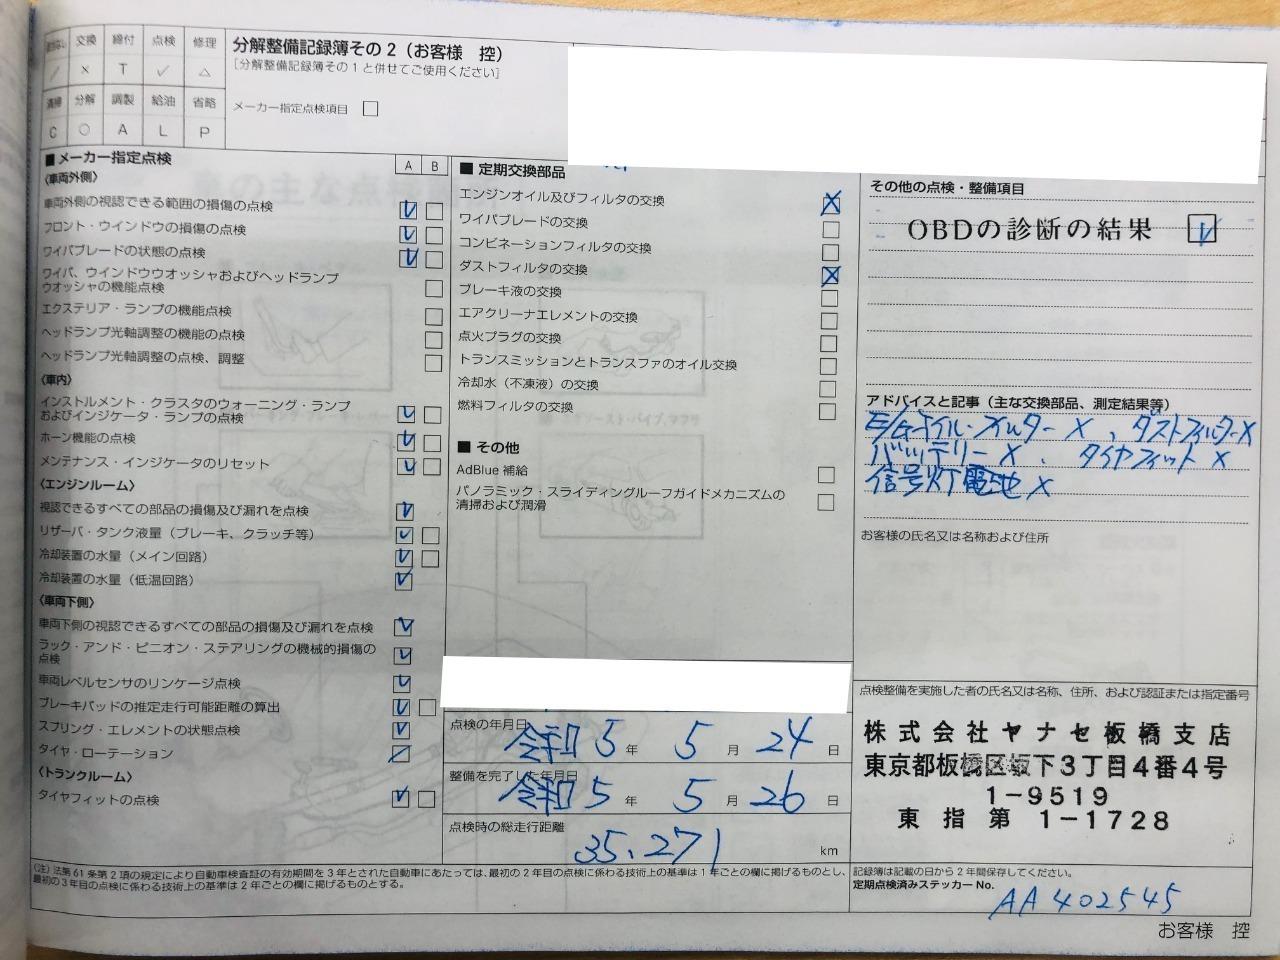 交換 締付 点検 修理
／ × T ✓ △
清掃 分解 調製 給油 省略
C ○ A L P
分解整備記録簿その2（お客様 控）
［分解整備記録簿その1と併せてご使用ください］
メーカー指定点検項目 □
■メーカー指定点検 A B
〈車両外側〉
車両外側の視認できる範囲の損傷の点検
フロント・ウインドウの損傷の点検
ワイパブレードの状態の点検
ワイパ、ウインドウウオッシャおよびヘッドランプ
ウオッシャの機能点検
エクステリア・ランプの機能点検
ヘッドランプ光軸調整の機能の点検
ヘッドランプ光軸調整の点検、調整
〈車内〉
インストルメント・クラスタのウォーニング・ランプ
およびインジケータ・ランプの点検
ホーン機能の点検
メンテナンス・インジケータのリセット
〈エンジンルーム〉
視認できるすべての部品の損傷及び漏れを点検
リザーバ・タンク液量（ブレーキ、クラッチ等）
冷却装置の水量（メイン回路）
冷却装置の水量（低温回路）
〈車両下側〉
車両下側の視認できるすべての部品の損傷及び漏れを点検
ラック・アンド・ピニオン・ステアリングの機械的損傷の
点検
車両レベルセンサのリンケージ点検
ブレーキパッドの推定走行可能距離の算出
スプリング・エレメントの状態点検
タイヤ・ローテーション
〈トランクルーム〉
タイヤフィットの点検
■ 定期交換部品
エンジンオイル及びフィルタの交換
ワイパブレードの交換
コンビネーションフィルタの交換
ダストフィルタの交換
ブレーキ液の交換
エアクリーナエレメントの交換
点火プラグの交換
トランスミッションとトランスファのオイル交換
冷却水（不凍液）の交換
燃料フィルタの交換
■ その他
AdBlue 補給
パノラミック・スライディングルーフガイドメカニズムの
清掃および潤滑
点検の年月日
令和 5 年 5 月 24 日
整備を完了した年月日
令和 5 年 5 月 26 日
点検時の総走行距離
35,271 km
その他の点検・整備項目
OBDの診断の結果
アドバイスと記事（主な交換部品、測定結果等）
E/Gオイル・フィルター×、ダストフィルター×
バッテリー×、タイヤフィット×
信号灯電池×
お客様の氏名又は名称および住所
点検整備を実施した者の氏名又は名称、住所、および認証または指定番号
株式会社ヤナセ板橋支店
東京都板橋区坂下3丁目4番4号
1-9519
東 指 第 1-1728
（注）法第61条第2項の規定により自動車検査証の有効期間を3年とされた自動車にあたっては、最初の2年目の点検に係わる技術上の基準は1年ごとの欄に掲げるものとし、
最初の3年目の点検に係わる技術上の基準は2年ごとの欄に掲げるものとする。
記録簿は記載の日から2年間保存してください。
定期点検済みステッカーNo.
AA402545
お客様 控